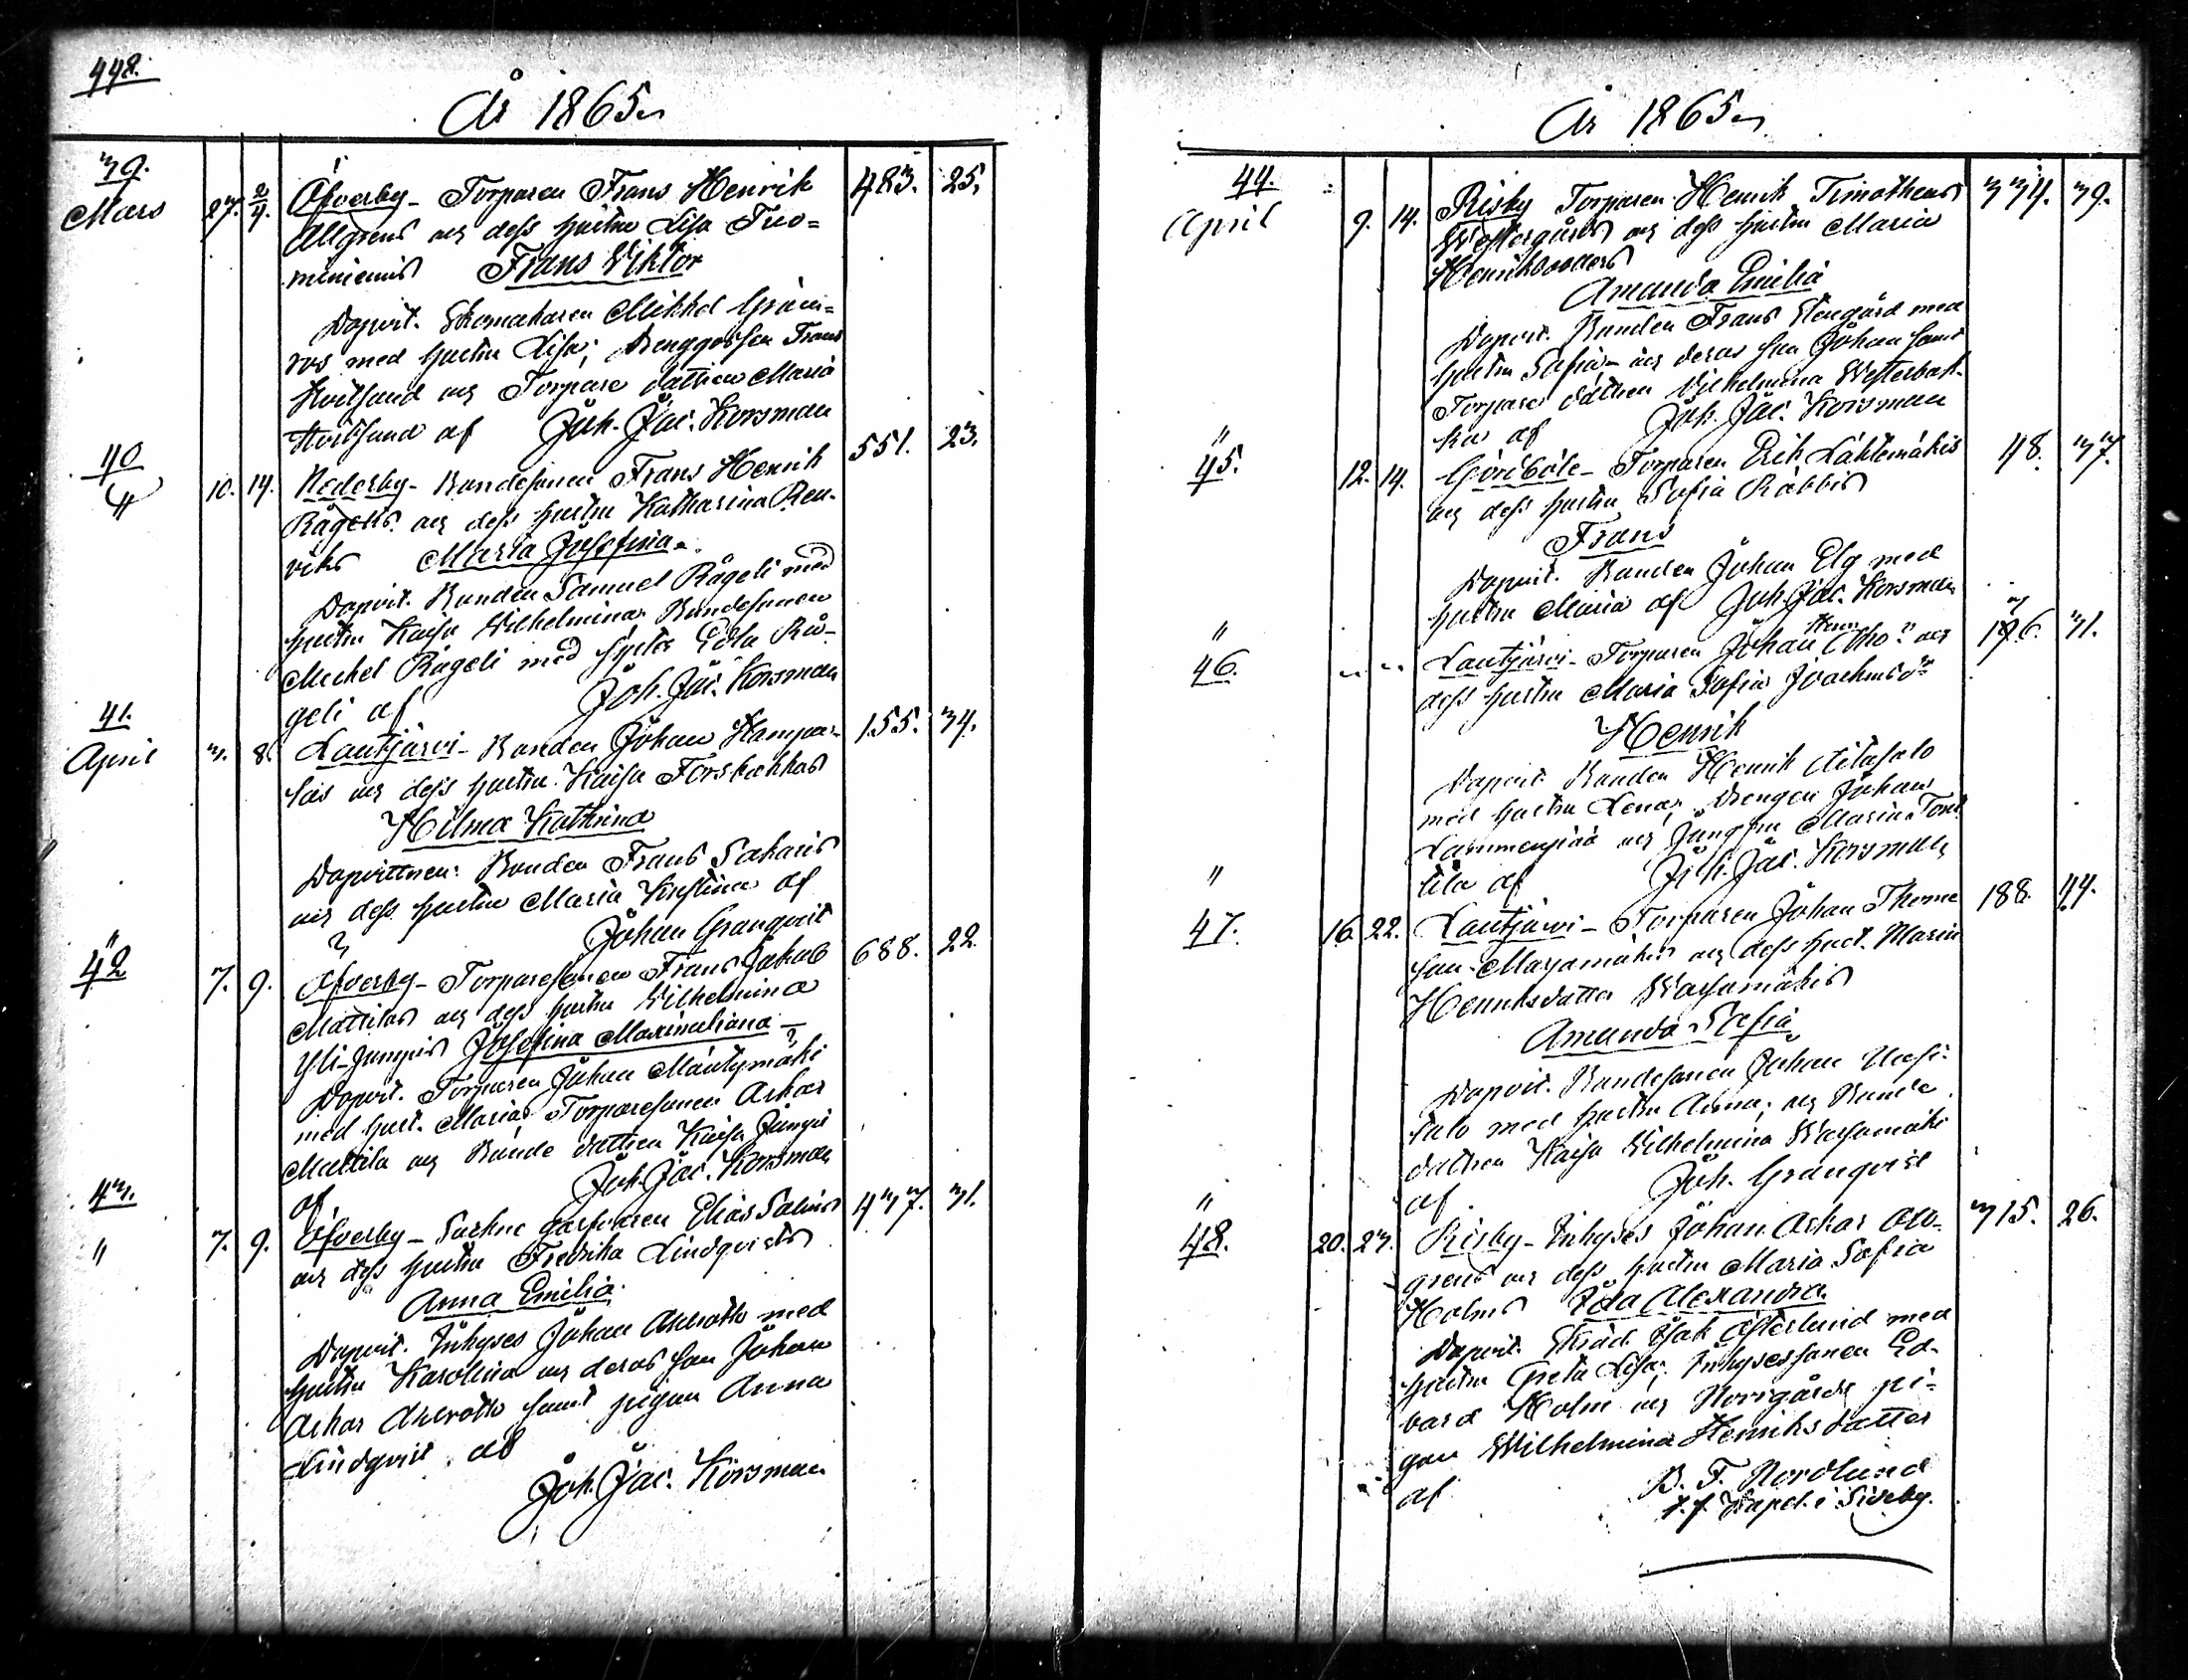 448.
År 1865
39.
Mars 27. 2/4. Öfverby - Torparen Frans Henrik 483. 25.
Allgrens och dess hustru Lisa Tuo=
miniemis Frans Viktor
Dopvit. Skomakaren Mikkel Grön=
ros med hustru Lisa; Drenggossen Frans
Kortsund och Torpare dattren Maria
af Joh. Jac. Korsman
40
" 10. 14. Nederby - Bondesonen Frans Henrik 551. 23.
Rågelis och dess hustru Katharina Hen-
riks Maria Josefina
Dopvit. Bonden Samuel Rågeli med
hustru Kaisa Wilhelmina Bondesonen
Mickel Rågeli med syster Edla Rå-
geli af Joh. Jac. Korsman
41.
April 3. 8. Lautjärvi - Bonden Johan Hampa- 155. 34.
lais och dess hustru Kaisa Forsbackas
Hilma Kathrina
Dopvittnen: Bonden Frans Sakaris
och dess hustru Maria Kristina af
Johan Granqvist
"
42 7. 9. Öfverby - Torparesonen Frans Jakob 688. 22.
Mattilas och dess hustru Wilhelmina
Yli-Jumpis Josefina Maximiliana -
Dopvit. Torparen Johan Mäntymäki
med hust. Maria, Torparesonen Askar
Mattila och Bonde dattren Kaisa
af Joh. Jac. Korsman
43.
" 7. 9. Öfverby - Sockne garfvaren Elias Salins 437. 31.
och dess hustru Fredrika Lindqvists
Anna Emilia
Dopvit. Inhyses Johan Ahlroth med
hustru Karolina och deras son Johan
Askar Ahlroth samt pigan Anna
Lindqvist af
Joh. Jac. Korsman
År 1865
44.
April 9. 14. Risby Torparen Henrik Timotheus 334. 39.
Westergårds och dess hustru Maria
Henriksdotters
Amanda Emilia
Dopvit. Bonden Frans Stengård med
hustru Sofia - och deras son Johan samt
Torpare dattren Wilhelmina Westerbak-
ka af Joh. Jac. Korsman
"
45. 12. 14. Gördböle - Torparen Erik Lähtemäkis 48. 37.
och dess hustru Sofia Räbbis
Frans
Dopvit. Bonden Johan Elg med
hustru Maria af Joh. Jac. Korsman
"
46. " " Lautjärvi - Torparen Johan och 31.
dess hustru Maria Sofia Joachimsdr
Henrik
Dopvit. Bonden Henrik Aitasalo
med hustru Lena, Drengen Johan
Lammenpää och Jungfru Maria Tont
tila af Joh. Jac. Korsman
"
47. 16. 22. Lautjärvi - Torparen Johan Thome 188. 44.
son Mayamäkis och dess hust. Maria
Henriksdatter Warsamäkis
Amanda Sofia
Dopvit. Bondesonen Johan Uusi-
talo med hustru Anna; och Bonde
dattren Kaisa Wilhelmina Warsamäki
af Joh. Granqvist
"
48. 20. 23. Risby - Inhyses Johan Askar 315. 26.
grens och dess hustru Maria Sofia
Holms Ida Alexandra
Dopvit. Skräd. Isak Österlund med
hustru Greta Lisa; Inhysessonen Ed-
vard Holm och Norrgårds pi-
gan Wilhelmina Henriksdatter
af B. F. Nordlund
t. f. Kapel. i Siveby.